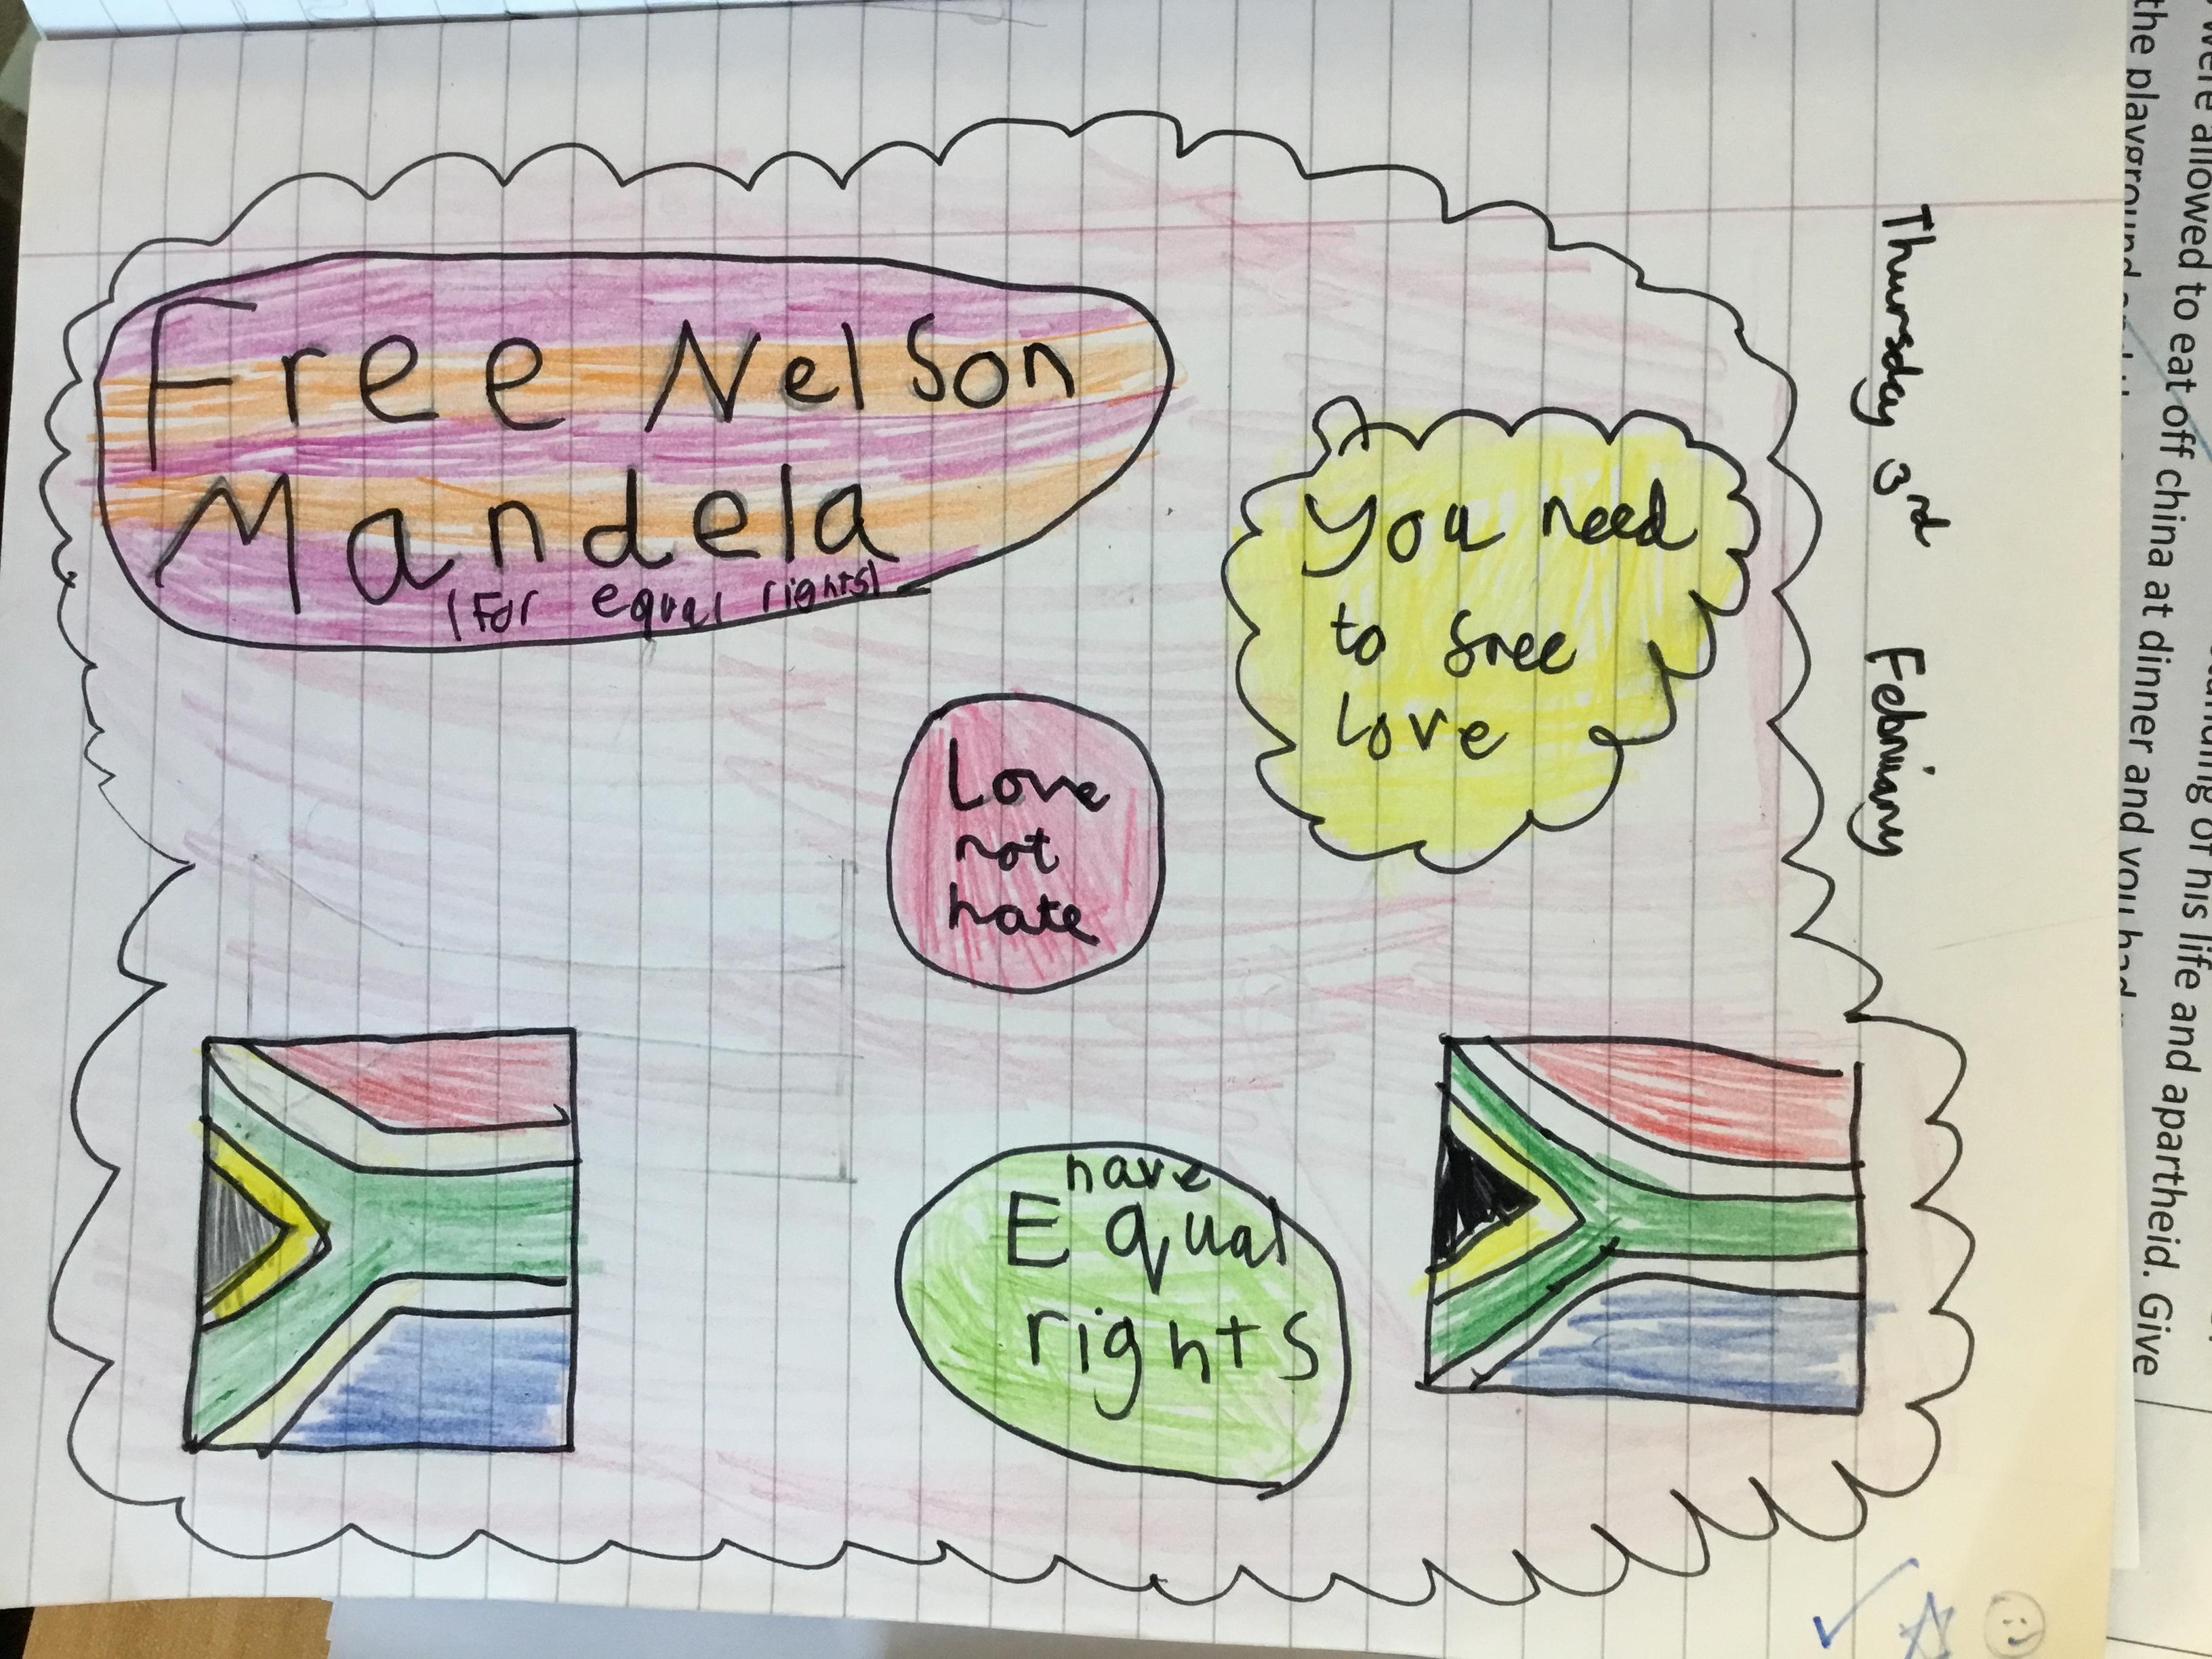 Thursday 3rd February
Free Nelson
Mandela
(For equal rights)
You need
to free
love
Love
not
hate
have
Equal
rights
were allowed to eat off china at dinner and you had
of his life and apartheid. Give
the playground